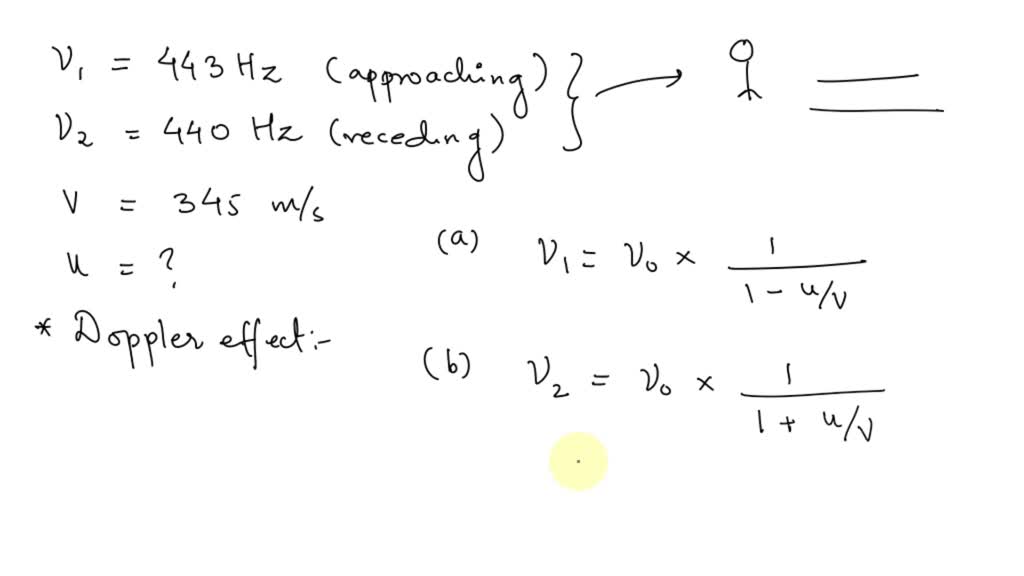 ν₁ = 443 Hz (approaching)
ν₂ = 440 Hz (receding)
v = 345 m/s
u = ?
* Doppler effect:-
(a) ν₁ = ν₀ × 1 / (1 - u/v)
(b) ν₂ = ν₀ × 1 / (1 + u/v)